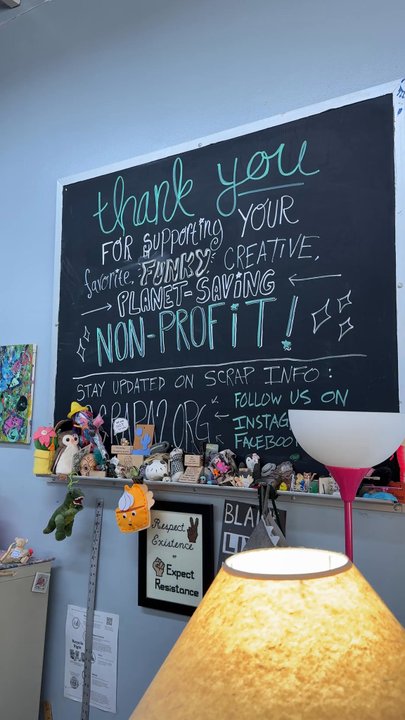 thank you
FOR $upporting YOUR
favorite, FUNKY, CREATIVE,
PLANET-SAVING
NON-PROFiT!
STAY UPDATED ON SCRAP INFO:
SCRAPA2.ORG
FOLLOW US ON
INSTAG
FACEBOO
Respect
Existence
or
Expect
Resistance
BLA
LI